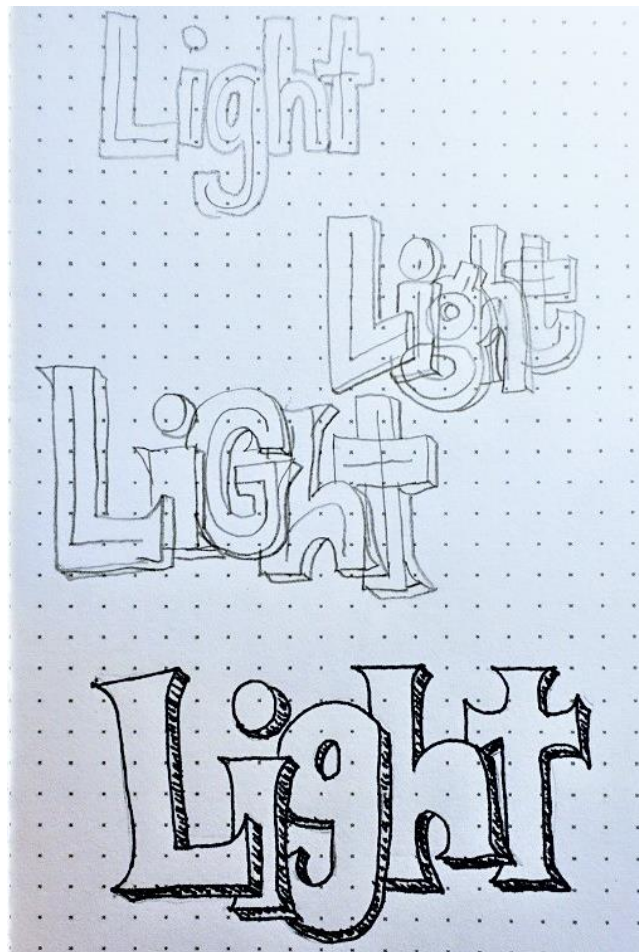 Light
Light
LiGht
Light